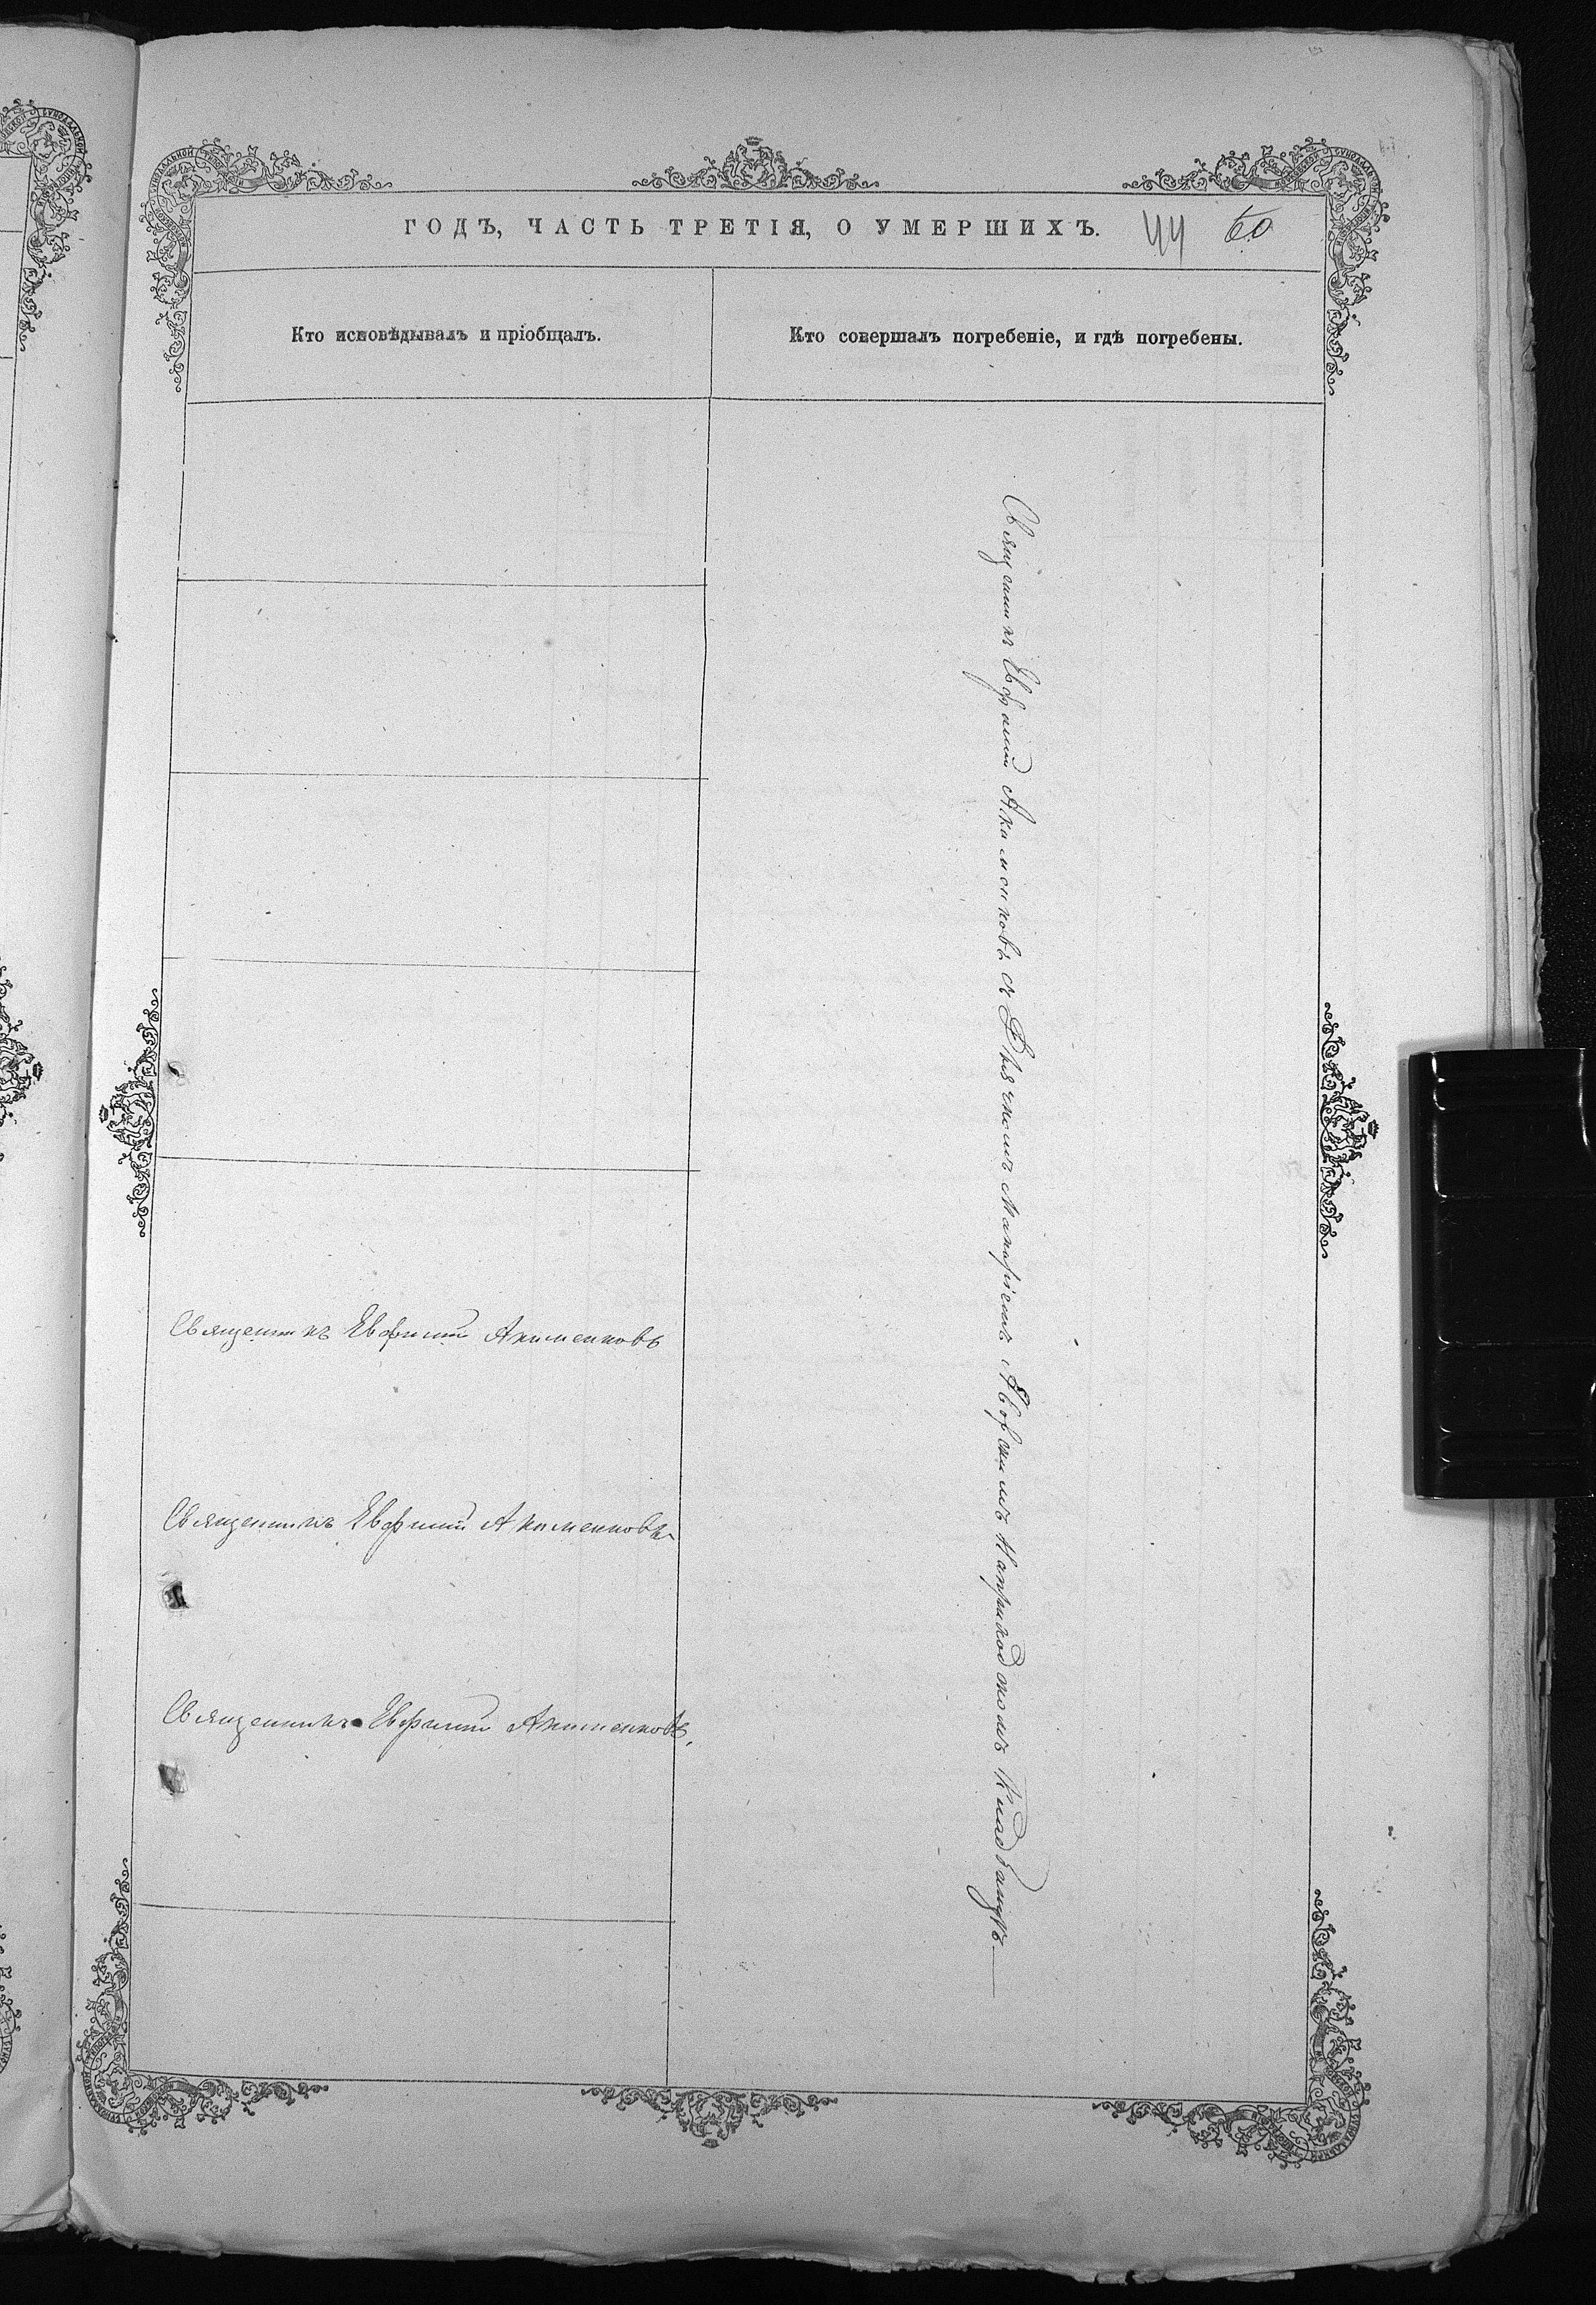 ГОДЪ, ЧАСТЬ ТРЕТІЯ, О УМЕРШИХЪ. 44 60
Кто исповѣдывалъ и пріобщалъ.
Кто совершалъ погребеніе, и гдѣ погребены.
Священникъ Евфимій Акименковъ
Священникъ Евфимій Акименковъ
Священникъ Евфимій Акименковъ,
Священникъ Евфимій Акименковъ съ Дьячкомъ Макаріемъ Яворскимъ На приходскомъ Кладбищѣ